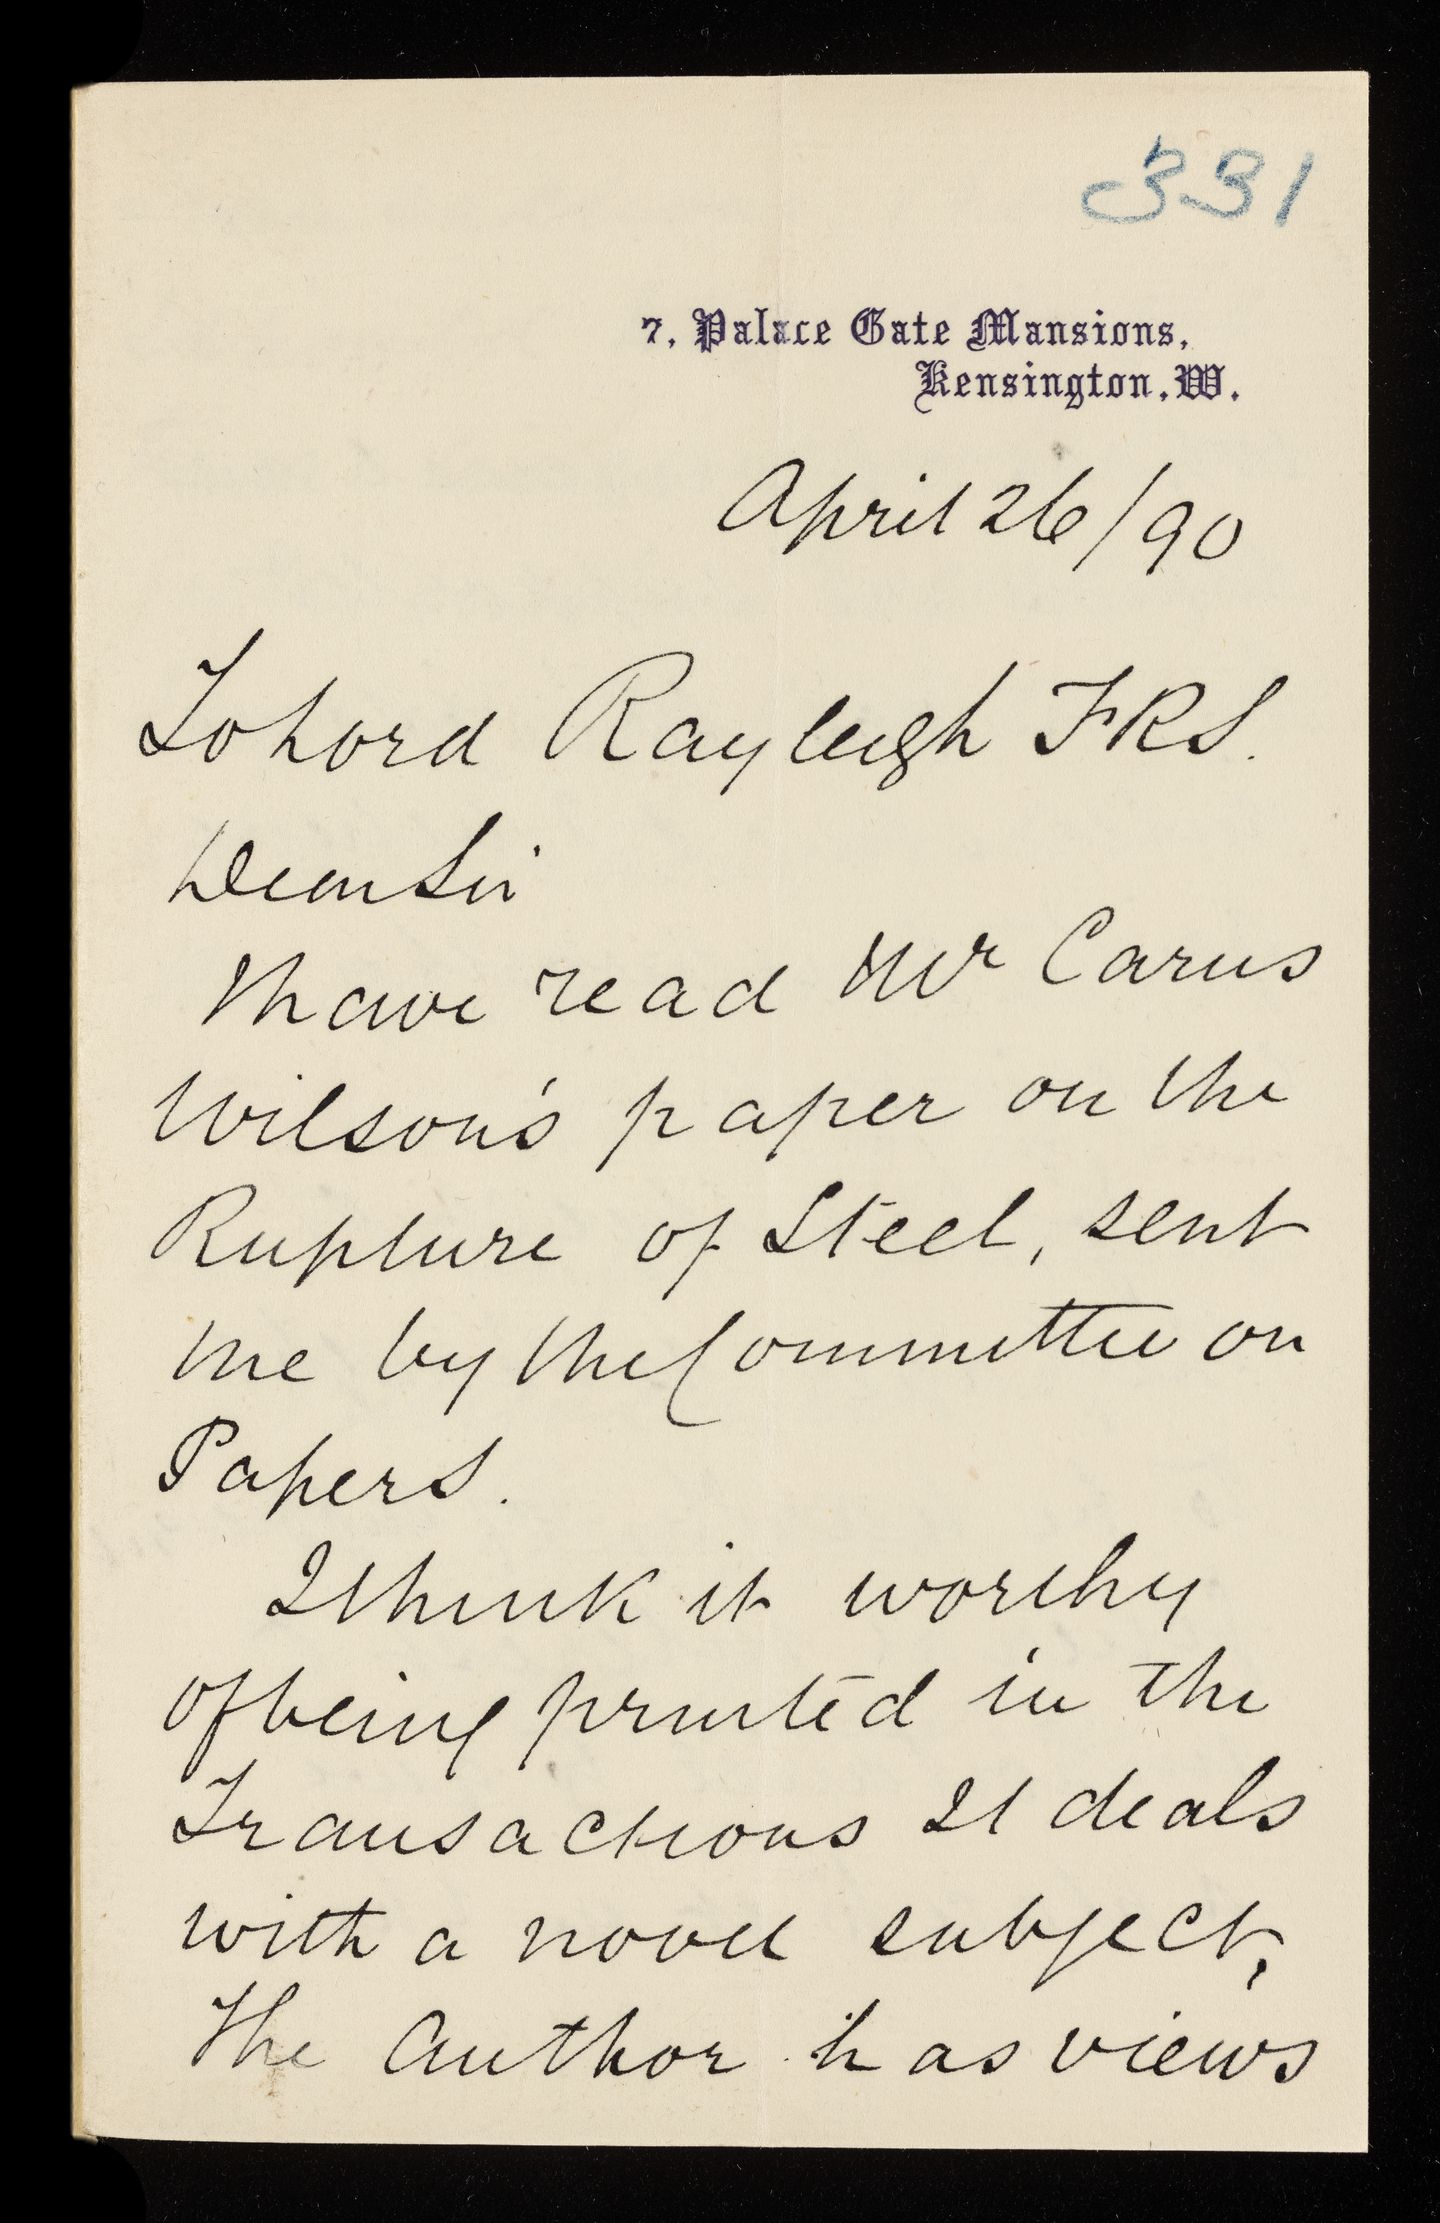 331
7, Palace Gate Mansions,
Kensington, W.
April 26/90
To Lord Rayleigh FRS.
Dear Sir
I have read Mr Carus
Wilson's paper on the
Rupture of Steel, sent
me by the Committee on
Papers.
I think it worthy
of being printed in the
Transactions It deals
with a novel subject,
The Author has views